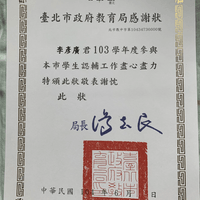 臺北市政府教育局感謝狀
李彥廣君103學年度參與
本市學生認輔工作盡心盡力
特頒此狀敬表謝忱
此狀
局長 湯志民
中華民國 年6月 日